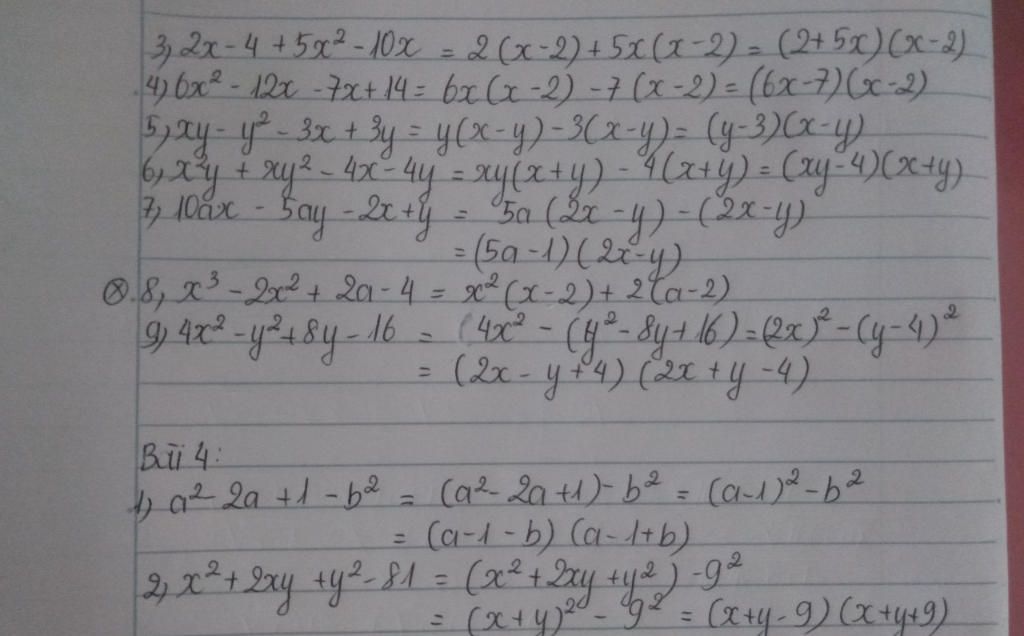 3, 2x - 4 + 5x² - 10x = 2(x-2) + 5x(x-2) = (2+5x)(x-2)
4) 6x² - 12x - 7x + 14 = 6x(x-2) - 7(x-2) = (6x-7)(x-2)
5, xy - y² - 3x + 3y = y(x-y) - 3(x-y) = (y-3)(x-y)
6, x²y + xy² - 4x - 4y = xy(x+y) - 4(x+y) = (xy-4)(x+y)
7, 10ax - 5ay - 2x + y = 5a(2x-y) - (2x-y)
= (5a-1)(2x-y)
⊗. 8, x³ - 2x² + 2a - 4 = x²(x-2) + 2(a-2)
9) 4x² - y² + 8y - 16 = 4x² - (y² - 8y + 16) = (2x)² - (y-4)²
= (2x - y + 4)(2x + y - 4)
Bài 4:
1, a² - 2a + 1 - b² = (a² - 2a + 1) - b² = (a-1)² - b²
= (a-1-b)(a-1+b)
2, x² + 2xy + y² - 81 = (x² + 2xy + y²) - 9²
= (x+y)² - 9² = (x+y-9)(x+y+9)